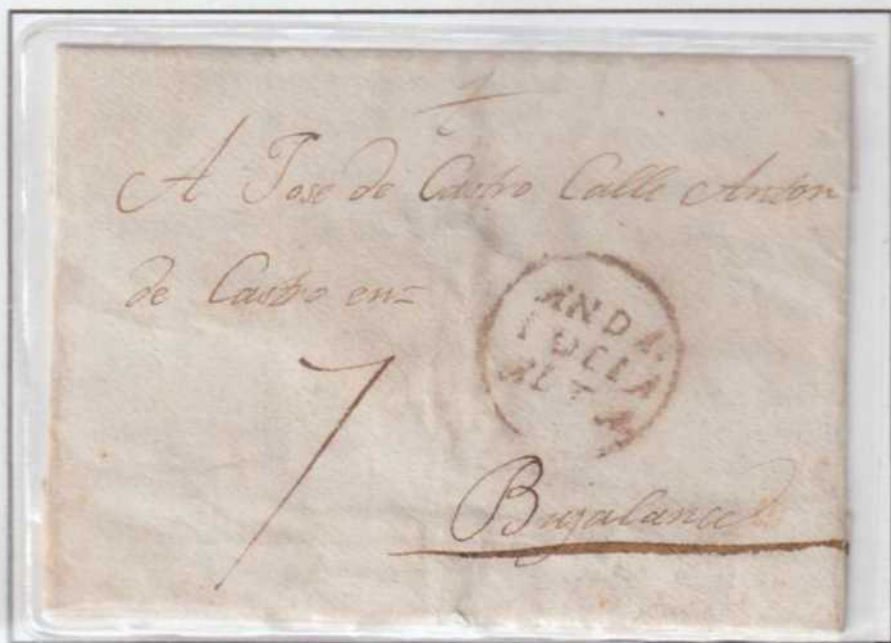 A Jose de Castro Calle Anton
de Castro en=
ANDA.
LUCIA
ALTA
7
Bujalance